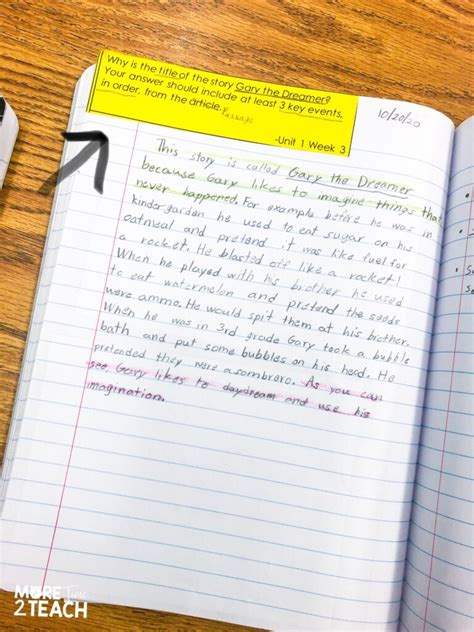 Why is the title of the story Gary the Dreamer?
Your answer should include at least 3 key events,
in order, from the article. Passage
-Unit 1 Week 3
10/20/20
This story is called Gary the Dreamer
because Gary likes to imagine things that
never happened. For example before he was in
kindergarden he used to eat sugar on his
oatmeal and pretend it was like fuel for
a rocket. He blasted off like a rocket!
When he played with his brother he used
to eat watermelon and pretend the seeds
were ammo. He would spit them at his brother.
When he was in 3rd grade Gary took a bubble
bath and put some bubbles on his head. He
pretended they were a sombrero. As you can
see, Gary likes to daydream and use his
imagination.
MORE Time
2TEACH